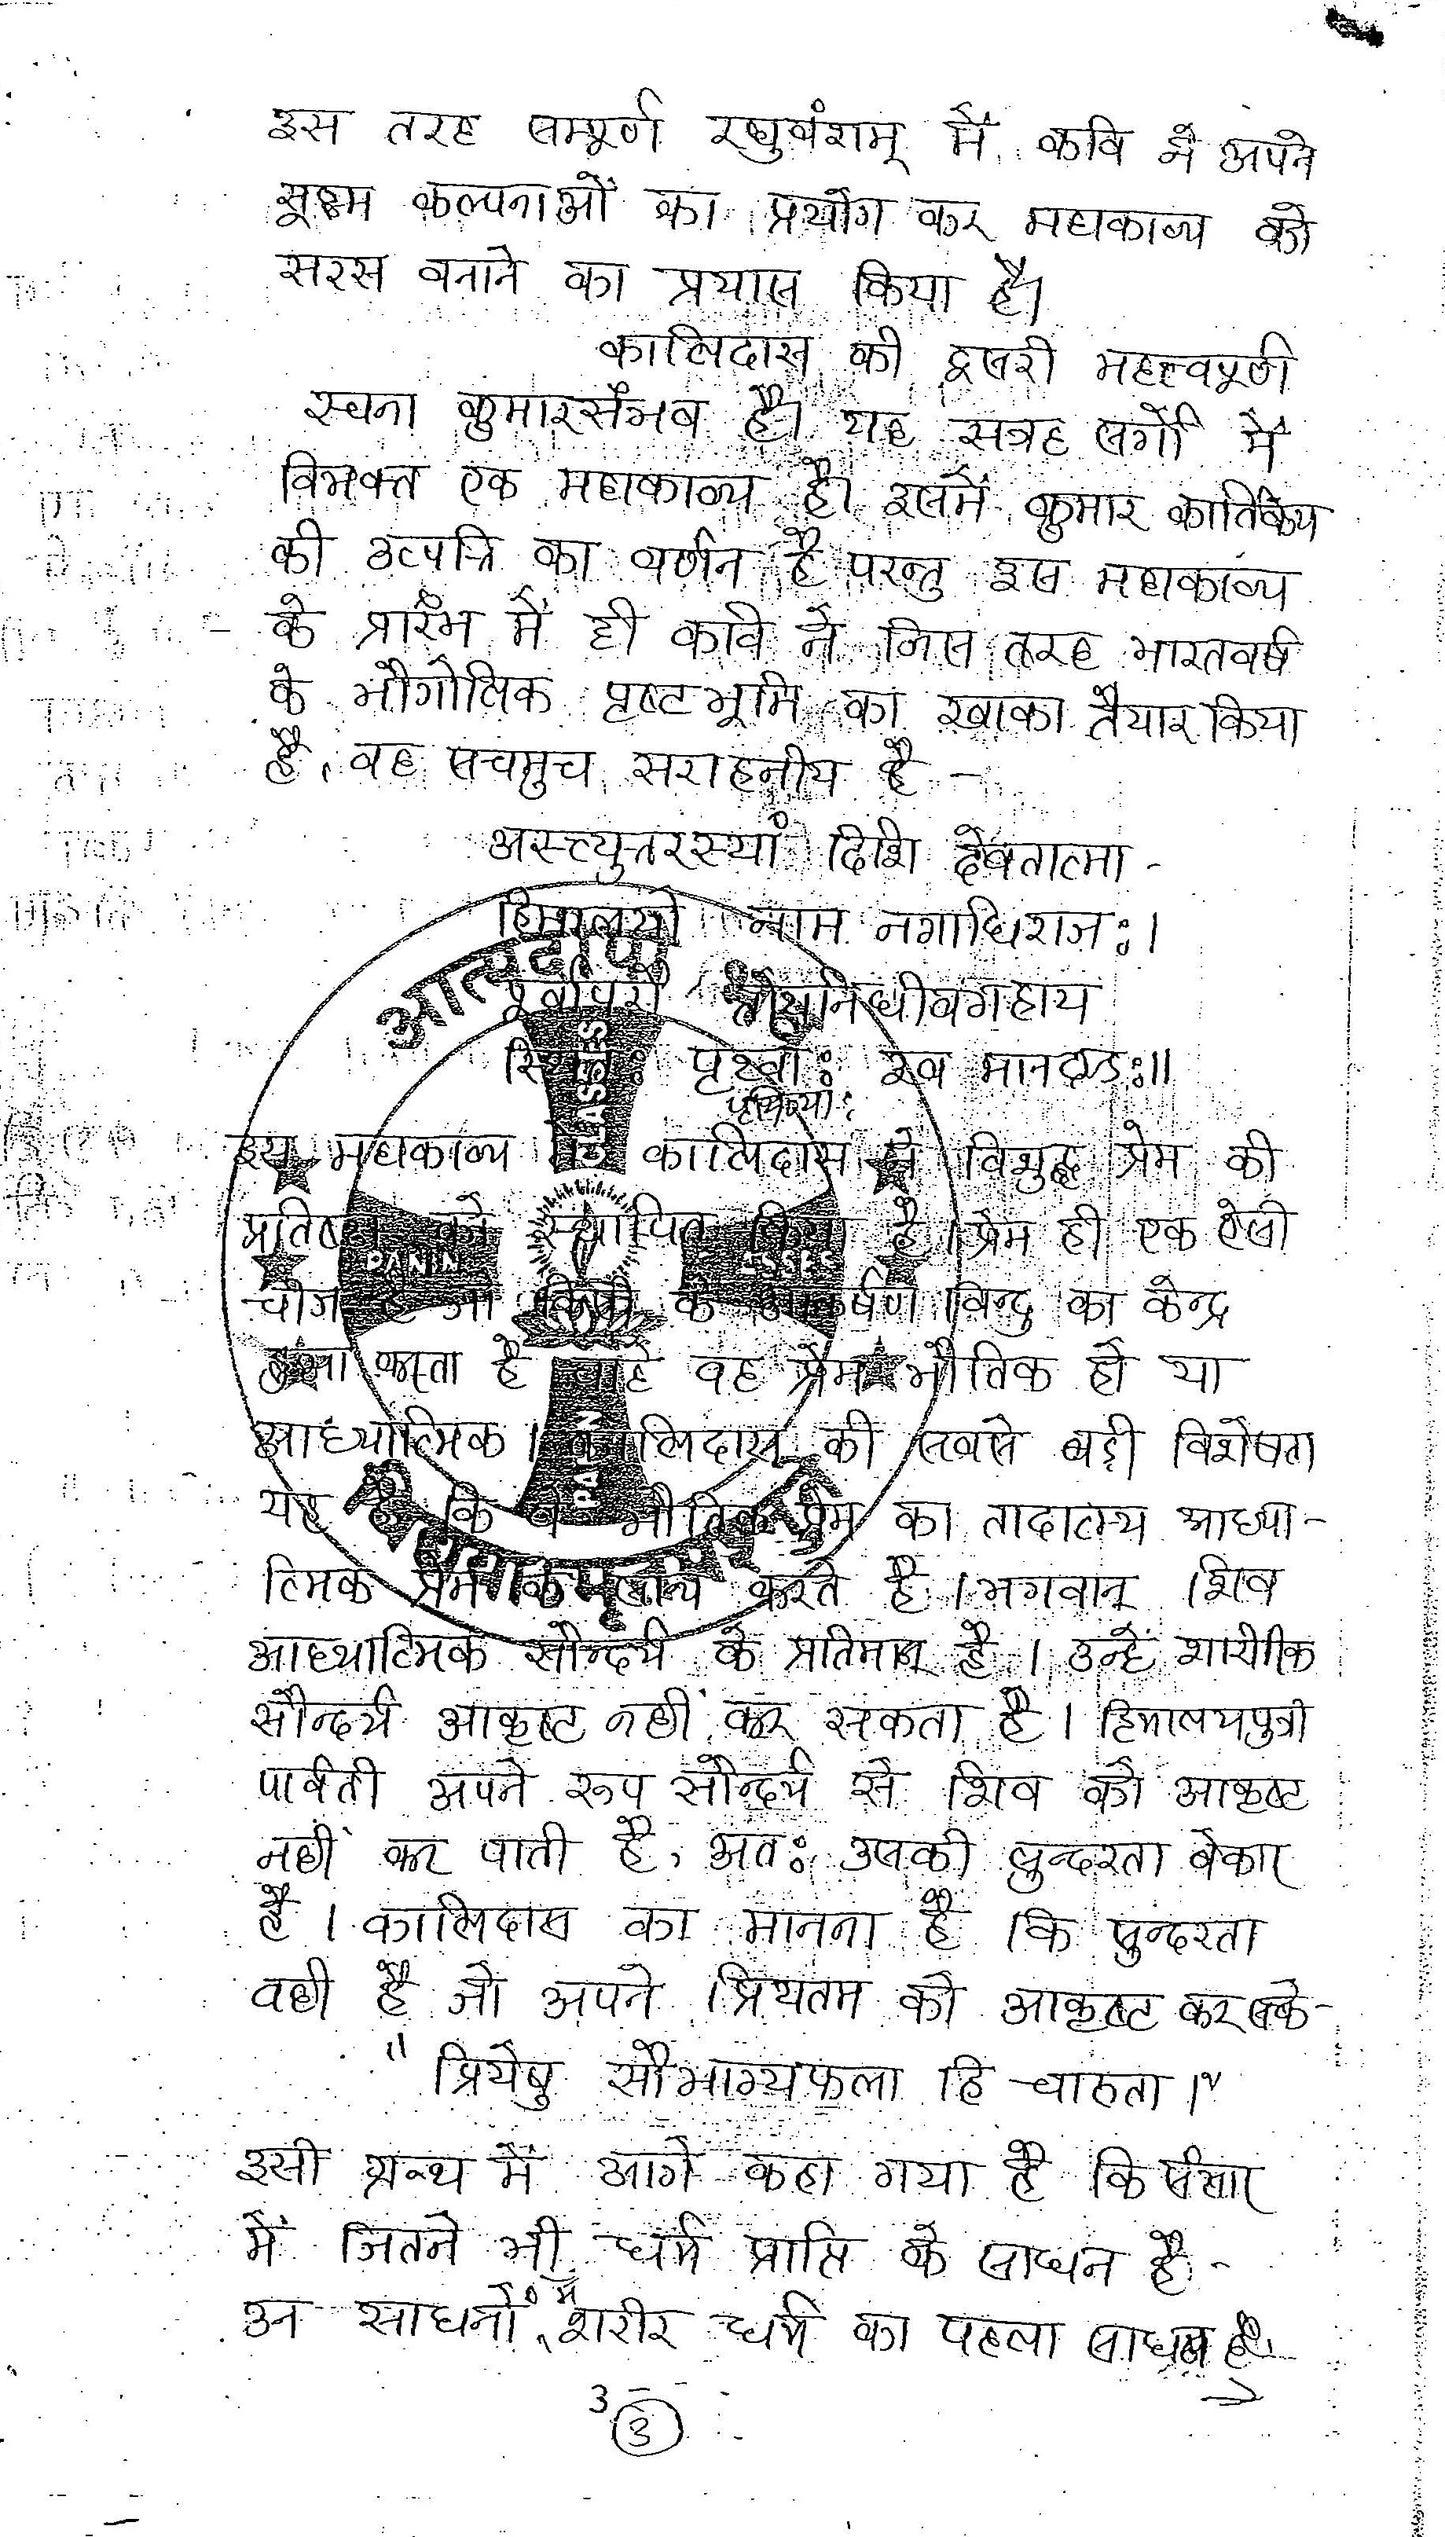 इस तरह सम्पूर्ण रघुवंशम् में कवि ने अपने
सूक्ष्म कल्पनाओं का प्रयोग कर महाकाव्य को
सरस बनाने का प्रयास किया है।
कालिदास की दूसरी महत्त्वपूर्ण
रचना कुमारसंभव है। यह सत्रह सर्गों में
विभक्त एक महाकाव्य है। इसमें कुमार कार्तिकेय
की उत्पत्ति का वर्णन है परन्तु इस महाकाव्य
के प्रारंभ में ही कवि ने जिस तरह भारतवर्ष
के भौगोलिक पृष्टभूमि का खाका तैयार किया
है, वह सचमुच सराहनीय है -
अस्त्युत्तरस्यां दिशि देवतात्मा -
हिमालयो नाम नगाधिराजः।
पूर्वापरौ तोयनिधीवगहाय
स्थितः पृथ्वाः इव मानदण्डः॥
पृथिव्याः
इस महाकाव्य में कालिदास ने विशुद्ध प्रेम की
प्रतिष्ठा को स्थापित किया है। प्रेम ही एक ऐसी
चीज है जो किसी के आकर्षण विन्दु का केन्द्र
हुआ करता है चाहे वह प्रेम भौतिक हो या
आध्यात्मिक। कालिदास की सबसे बड़ी विशेषता
यह है कि वे भौतिक प्रेम का तादात्म्य आध्या-
त्मिक प्रेम के साथ करते है। भगवान् शिव
आध्यात्मिक सौन्दर्य के प्रतिमान् है। उन्हें शारीरिक
सौन्दर्य आकृष्ट नहीं कर सकता है। हिमालयपुत्री
पार्वती अपने रूप सौन्दर्य से शिव को आकृष्ट
नहीं कर पाती है, अतः उसकी सुन्दरता बेकार
है। कालिदास का मानना है कि सुन्दरता
वही है जो अपने प्रियतम को आकृष्ट कर सके-
"प्रियेषु सौभाग्यफला हि चारुता।"
इसी ग्रन्थ में आगे कहा गया है कि संसार
में जितने भी धर्म प्राप्ति के साधन है -
उन साधनों में शरीर धर्म का पहला साधन है
3 3